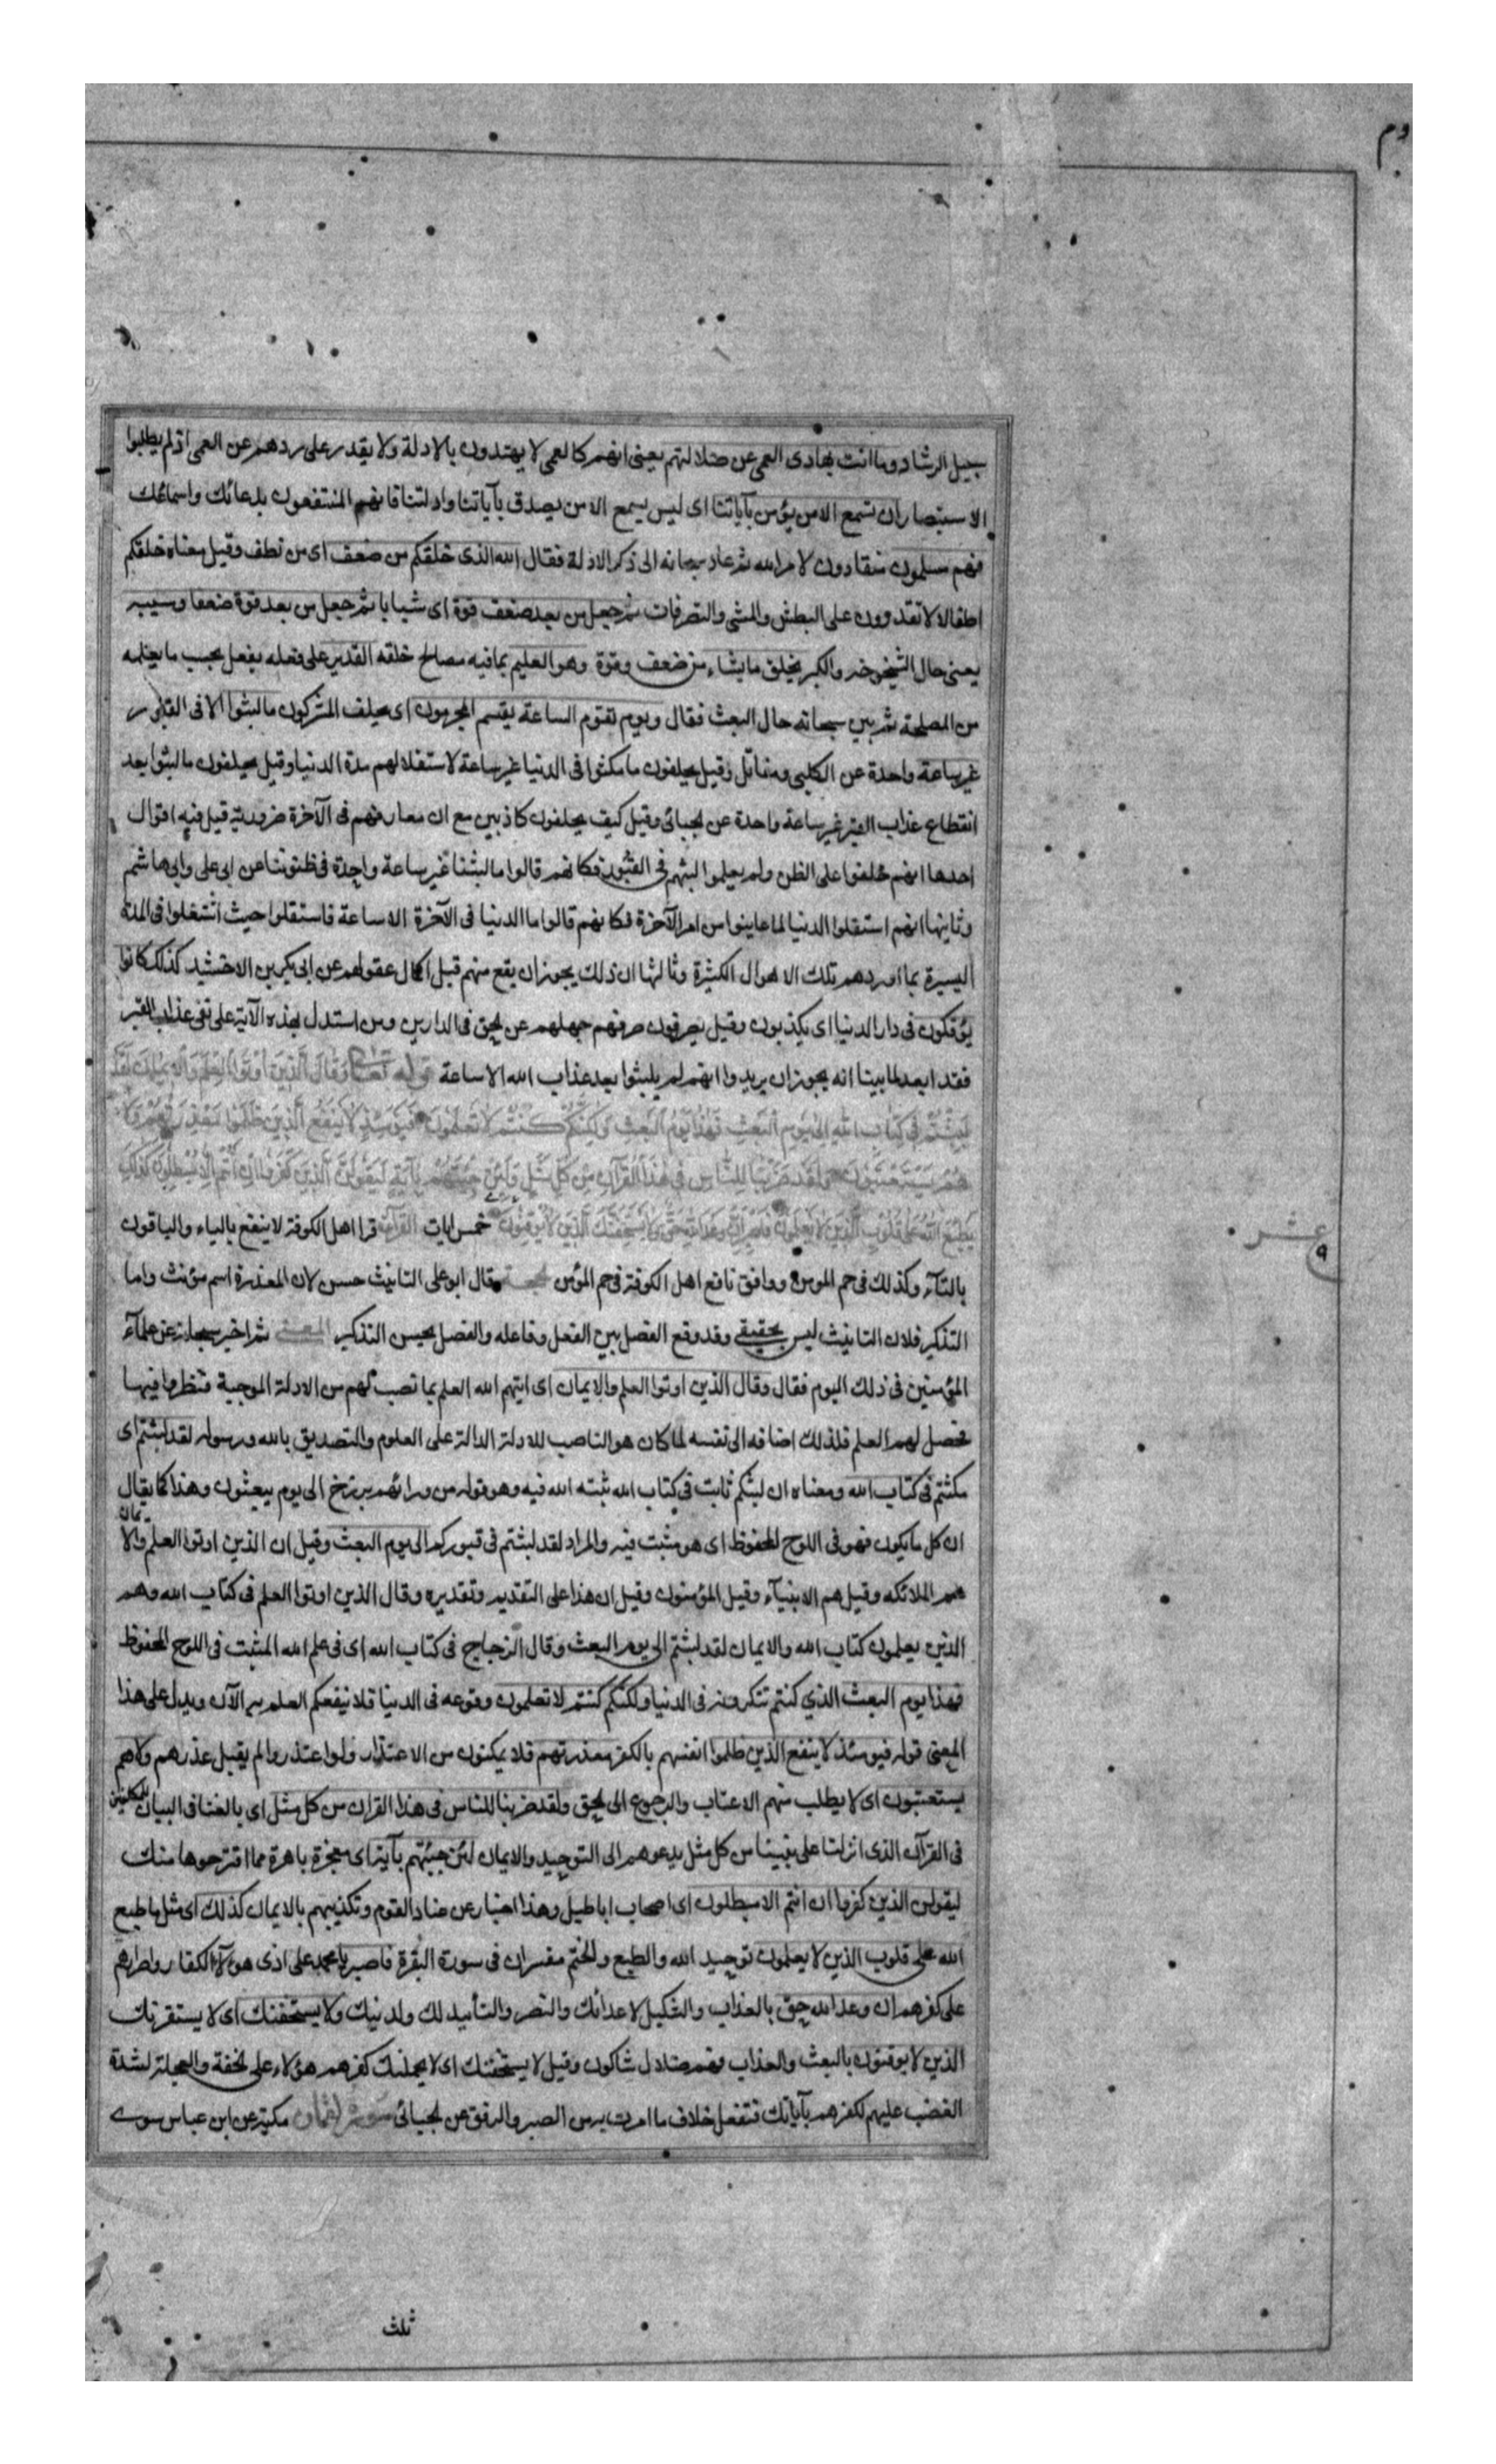 سبيل الرشاد وما انت بهادى العمى عن ضلالتهم يعنى انهم كالعمى لا يهتدون بالادلة ولا يقدر على ردهم عن العمى اذ لم يطلبوا
الاستبصار ان تسمع الا من يؤمن بآياتنا اى ليس يسمع الا من يصدق بآياتنا وادلتنا فانهم المنتفعون بدعائك واسماعك
فهم مسلمون منقادون لامر الله ثم عاد سبحانه الى ذكر الادلة فقال الله الذى خلقكم من ضعف اى من نطف وقيل معناه خلقكم
اطفالا لا تقدرون على البطش والمشى والتصرفات ثم جعل من بعد ضعف قوة اى شبابا ثم جعل من بعد قوة ضعفا وشيبة
يعنى حال الشيخوخه والكبر يخلق ما يشاء من ضعف وقوة وهو العليم بما فيه مصالح خلقه القدير على فعله يفعل بحسب ما يعلمه
من المصلحة ثم بين سبحانه حال البعث فقال ويوم تقوم الساعة يقسم المجرمون اى يحلف المشركون ما لبثوا الا فى القبور
غير ساعة واحدة عن الكلبى ومقاتل وقيل يحلفون ما مكثوا فى الدنيا غير ساعة لاستقلالهم مدة الدنيا وقيل يحلفون ما لبثوا بعد
انقطاع عذاب القبر غير ساعة واحدة عن الجبائى وقيل كيف يحلفون كاذبين مع ان معارفهم فى الآخرة ضرورية قيل فيه اقوال
احدها انهم حلفوا على الظن ولم يعلموا لبثهم فى القبور فكانهم قالوا ما لبثنا غير ساعة واحدة فى ظنوننا عن ابى على وابى هاشم
وثانيها انهم استقلوا الدنيا لما عاينوا من امر الآخرة فكانهم قالوا ما الدنيا فى الآخرة الا ساعة فاستقلوا حيث اشتغلوا فى المدة
اليسيرة بما اوردهم تلك الاهوال الكثيرة وثالثها ان ذلك يجوز ان يقع منهم قبل اكمال عقولهم عن ابى بكر بن الاخشيد كذلك كانوا
يؤفكون فى دار الدنيا اى يكذبون وقيل يصرفون صرفهم جهلهم عن الحق فى الدارين ومن استدل بهذه الآية على نفى عذاب القبر
فقد ابعد لما بينا انه يجوز ان يريدوا انهم لم يلبثوا بعد عذاب الله الا ساعة قوله تعالى وقال الذين اوتوا العلم والايمان لقد
لبثتم فى كتاب الله الى يوم البعث فهذا يوم البعث ولكنكم كنتم لا تعلمون فيومئذ لا ينفع الذين ظلموا معذرتهم ولا
هم يستعتبون ولقد ضربنا للناس فى هذا القرآن من كل مثل ولئن جئتهم بآية ليقولن الذين كفروا ان انتم الا مبطلون كذلك
يطبع الله على قلوب الذين لا يعلمون فاصبر ان وعد الله حق ولا يستخفنك الذين لا يوقنون خمس ايات القراءة قرا اهل الكوفة لا ينفع بالياء والباقون
بالتاء وكذلك فى حم المومن ووافق نافع اهل الكوفة فى حم المؤمن الحجة قال ابو على التانيث حسن لان المعذرة اسم مؤنث واما
التذكير فلان التانيث ليس بحقيقى وقد وقع الفصل بين الفعل وفاعله والفصل يحسن التذكير المعنى ثم اخبر سبحانه عن علماء
المؤمنين فى ذلك اليوم فقال وقال الذين اوتوا العلم والايمان اى اتيهم الله العلم بما نصب لهم من الادلة الموجبة فنظروا فيها
فحصل لهم العلم فلذلك اضافه الى نفسه لما كان هو الناصب للادلة الدالة على العلوم والتصديق بالله ورسوله لقد لبثتم اى
مكثتم فى كتاب الله ومعناه ان لبثكم ثابت فى كتاب الله ثبته الله فيه وهو قوله من ورائهم برزخ الى يوم يبعثون وهذا كما يقال
ان كل ما يكون فهو فى اللوح المحفوظ اى هو مثبت فيه والمراد لقد لبثتم فى قبوركم الى يوم البعث وقيل ان الذين اوتوا العلم والايمان
هم الملائكه وقيل هم الانبياء وقيل المؤمنون وقيل ان هذا على التقديم وتقديره وقال الذين اوتوا العلم فى كتاب الله وهم
الذين يعلمون كتاب الله والايمان لقد لبثتم الى يوم البعث وقال الزجاج فى كتاب الله اى فى علم الله المثبت فى اللوح المحفوظ
فهذا يوم البعث الذي كنتم تنكرونه فى الدنيا ولكنكم كنتم لا تعلمون وقوعه فى الدنيا فلا ينفعكم العلم به الآن ويدل على هذا
المعنى قوله فيومئذ لا ينفع الذين ظلموا انفسهم بالكفر معذرتهم فلا يمكنون من الاعتذار ولو اعتذروا لم يقبل عذرهم ولا هم
يستعتبون اى لا يطلب منهم الاعتاب والرجوع الى الحق ولقد ضربنا للناس فى هذا القران من كل مثل اى بالغنا فى البيان للمكلفين
فى القرآن الذى انزلنا على نبينا من كل مثل يدعوهم الى التوحيد والايمان لئن جئتهم بآية اى معجزة باهرة مما اقترحوها منك
ليقولن الذين كفروا ان انتم الا مبطلون اى اصحاب اباطيل وهذا اخبار عن عناد القوم وتكذيبهم بالايمان كذلك اى مثل ما طبع
الله على قلوب الذين لا يعلمون توحيد الله والطبع والختم مفسران فى سورة البقرة فاصبر يا محمد على اذى هؤلاء الكفار واصرارهم
على كفرهم ان وعد الله حق بالعذاب والتنكيل لاعدائك والنصر والتأييد لك ولدينك ولا يستخفنك اى لا يستفزنك
الذين لا يوقنون بالبعث والعذاب فهم ضلال شاكون وقيل لا يستخفنك اى لا يحملنك كفرهم هؤلاء على الخفة والعجلة لشدة
الغضب عليهم لكفرهم بآياتك فتفعل خلاف ما امرت به من الصبر والرفق عن الجبائى سورة لقمان مكية عن ابن عباس سوى
عشر
ثلث